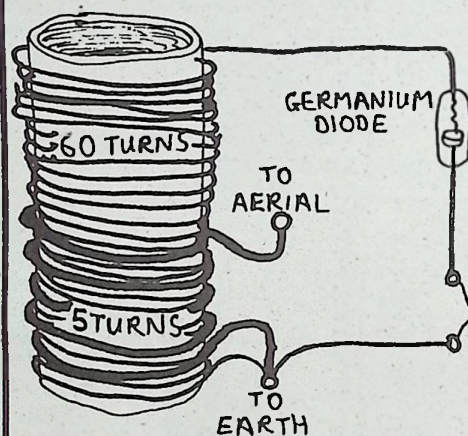 60 TURNS
GERMANIUM
DIODE
TO
AERIAL
5 TURNS
TO
EARTH